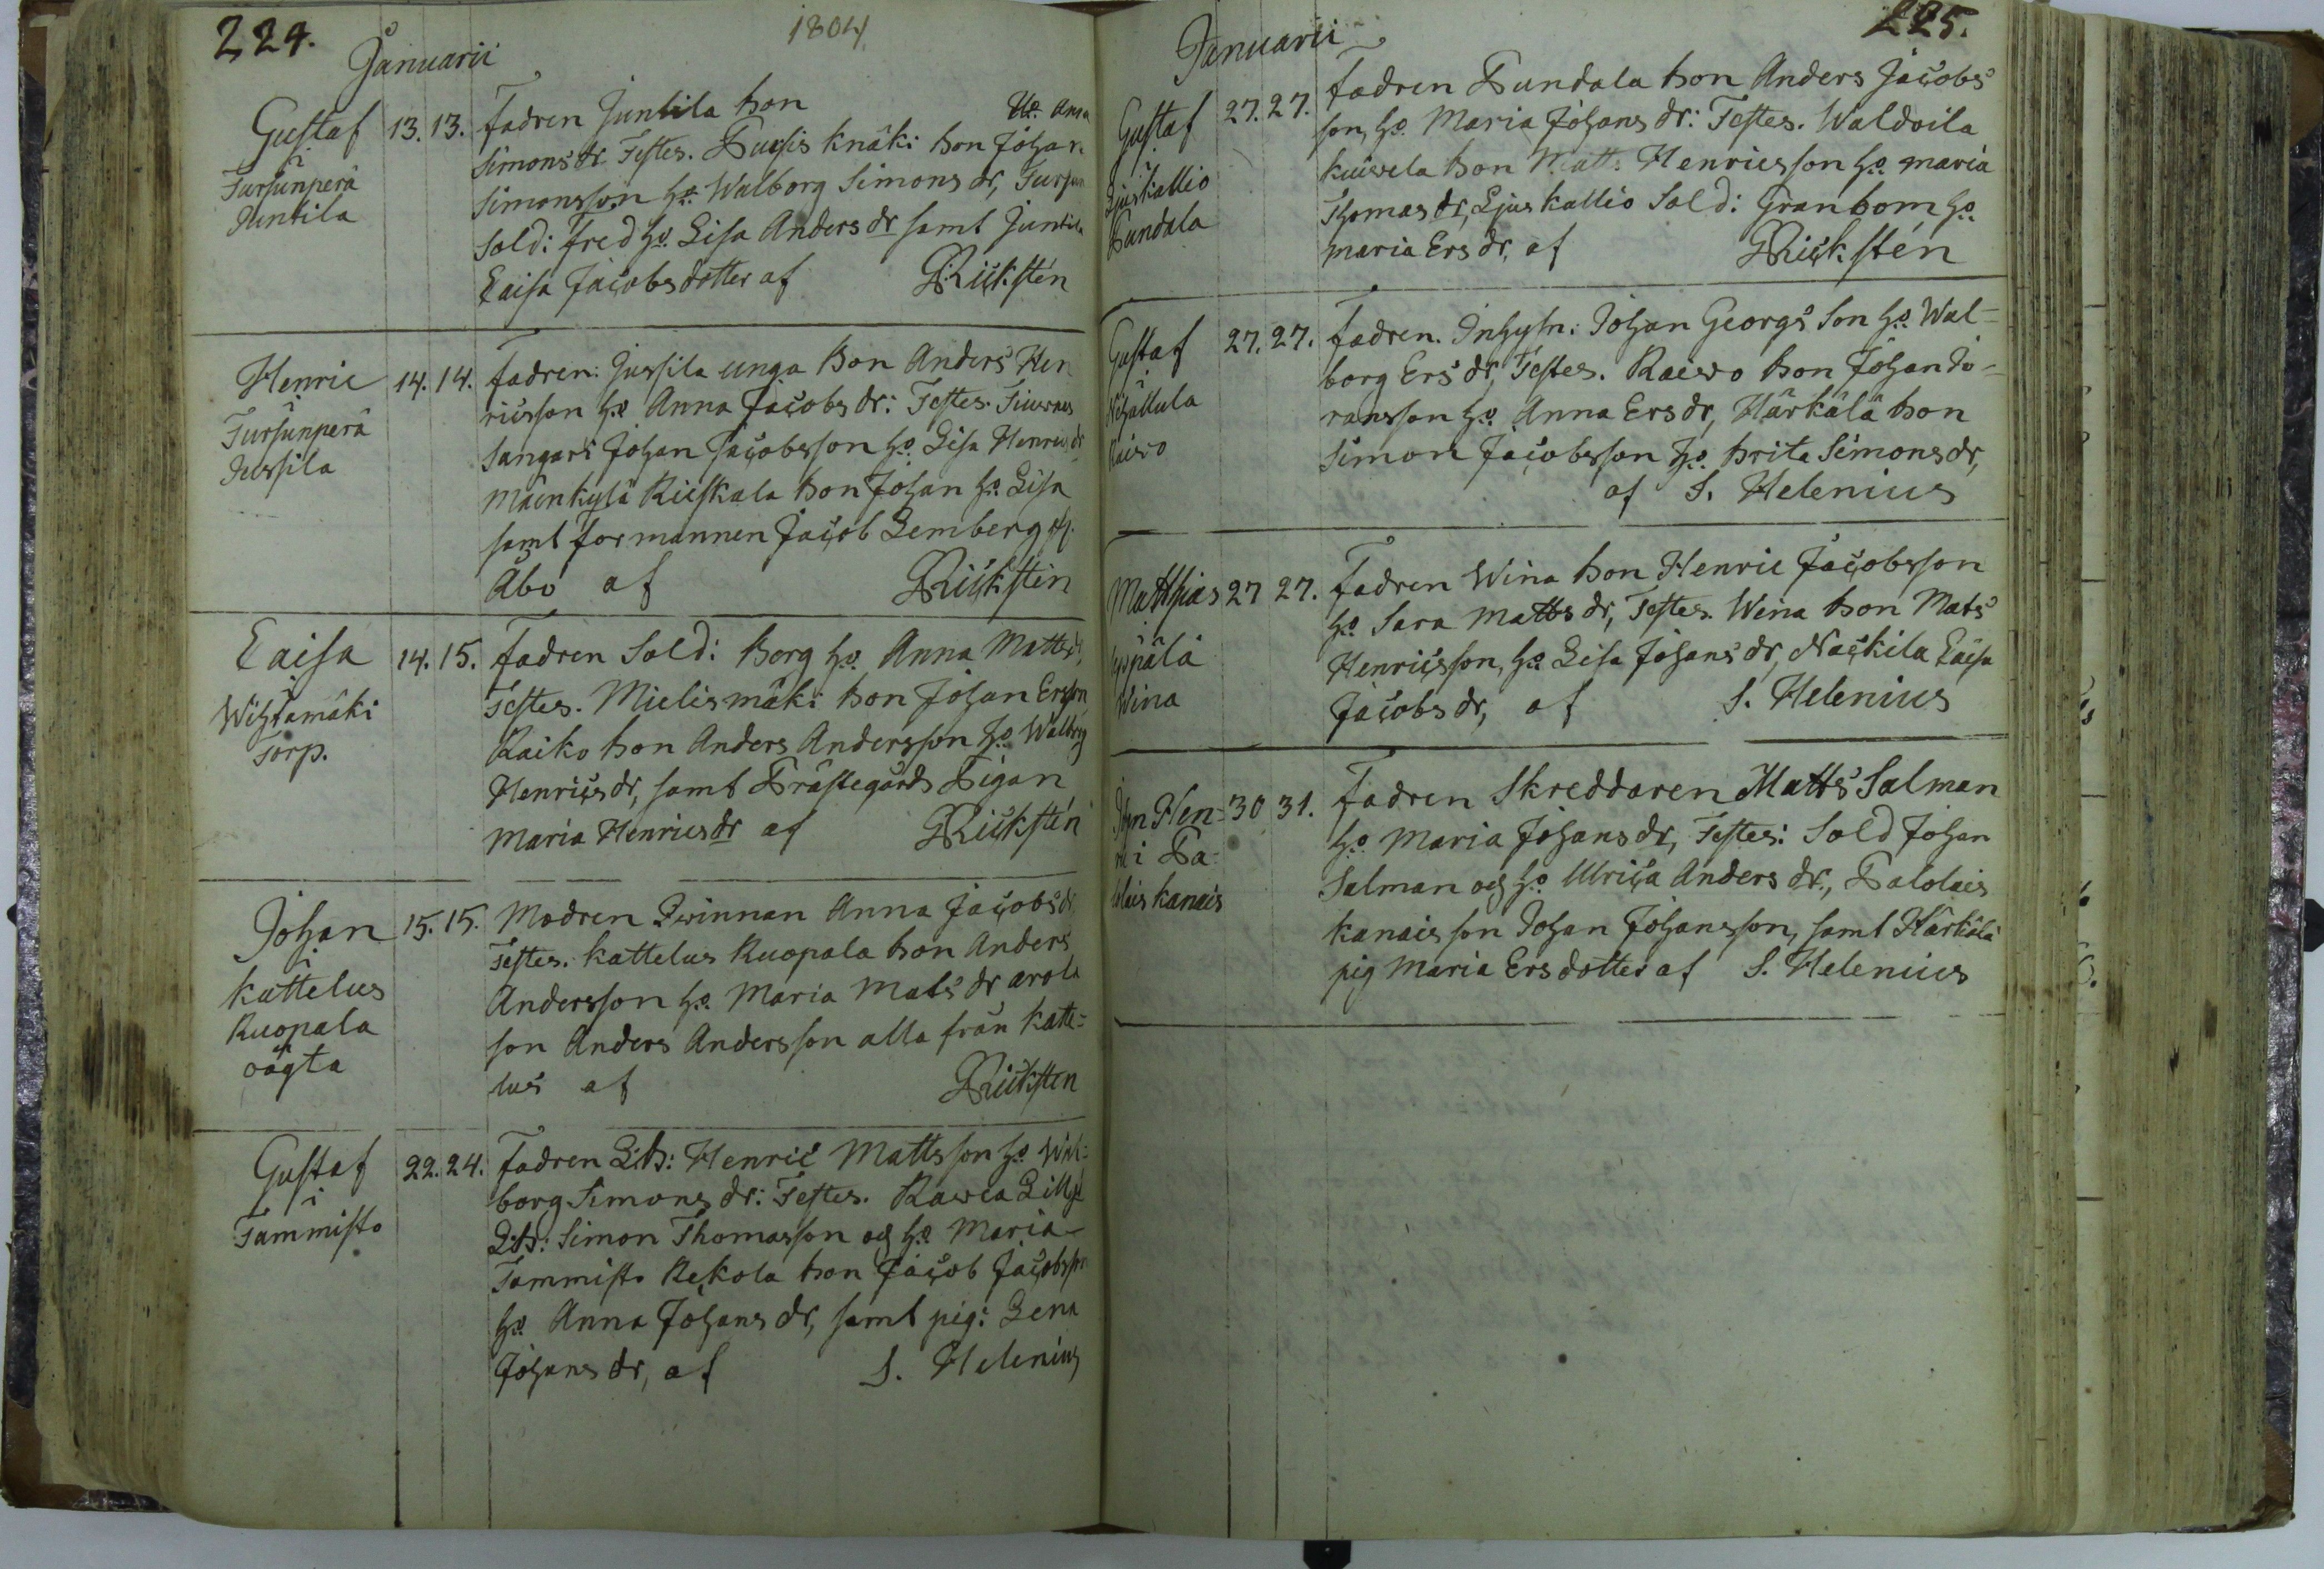 224.
1804
Januarii
Gustaf
i
Tursunperä
Juntila
13. 13.
Fadren Juntila bon H:o Anna
Simons dr. Testes. Puosis knäki bon Johan
Simonsson h:o Walborg Simons dr, Tursun
Sold: Fred h:o Lisa Anders dr samt Juntila
Caisa Jacobs dotter af Rickstén
Henric
i
Tursunperä
Jussila
14. 14.
Fadren: Jussila unga bon Anders Hen
ricsson h:o Anna Jacobs dr: Testes.
Sangari Johan Jacobsson h:o Lisa Henrics dr
Mäenkylä Riiskala bon Johan h:o Lisa
samt formannen Jacob Lemberg
Åbo af Rickstén
Caisa
i
Wihtamäki
Torp.
14. 15.
Fadren Sold: Borg h:o Anna Matts dr,
Testes. Mielismäki bon Johan Ersson
Raiko bon Anders Andersson h:o Walborg
Henrics dr, samt Prästegårds Pigan
Maria Henrics dr af Rickstén
Johan
i
Kattelus
Ruopala
oägta
15. 15.
Modren Qwinnan Anna Jacobs dr
Testes. Kattelus Ruopala bon Anders
Andersson h:o Maria Mats dr arola
son Anders Andersson alla från Katte=
lus af Rickstén
Gustaf
i
Tammisto
22. 24.
Fadren L:b: Henric Mattsson h:o Wal=
borg Simons dr: Testes.
L:b: Simon Thomasson och h:o Maria
Tammisto Rekola bon Jacob Jacobsson
h:o Anna Johans dr, samt pig: Lena
Johans dr, af S. Helenius
225.
Januarii
Gustaf
i
Ljuskallio
Pundala
27. 27.
Fadren Pundala bon Anders Jacobs
son, h:o Maria Johans dr: Testes. Waldoila
Kuuvela bon Matts Henricsson h:o Maria
Thomas dr, Ljuskallio Sold: Granbom h:o
Maria Ers dr, af Rickstén
Gustaf
i
Raiwo
27. 27.
Fadren. Inhysn: Johan Georgs Son h:o Wal=
borg Ers dr, Testes. Raiwo bon Johan Jö=
ransson h:o Anna Ers dr, Härkälä bon
Simon Jacobsson h:o Brita Simons dr,
af S. Helenius
Matthias
i
Wina
27 27.
Fadren Wina bon Henric Jacobsson
h:o Sara Matts dr, Testes. Wina bon Mats
Henricsson, h:o Lisa Johans dr, Nackila Caisa
Jacobs dr, af S. Helenius
Johan Hen=
ric i Pa=
lolais kanais
30 31.
Fadren Skreddaren Matts Salman
h:o Maria Johans dr, Testes: Sold Johan
Salman och h:o Ulrica Anders dr., Palolais
kanais son Johan Johansson, samt Härkälä
pig Maria Ers dotter af S. Helenius